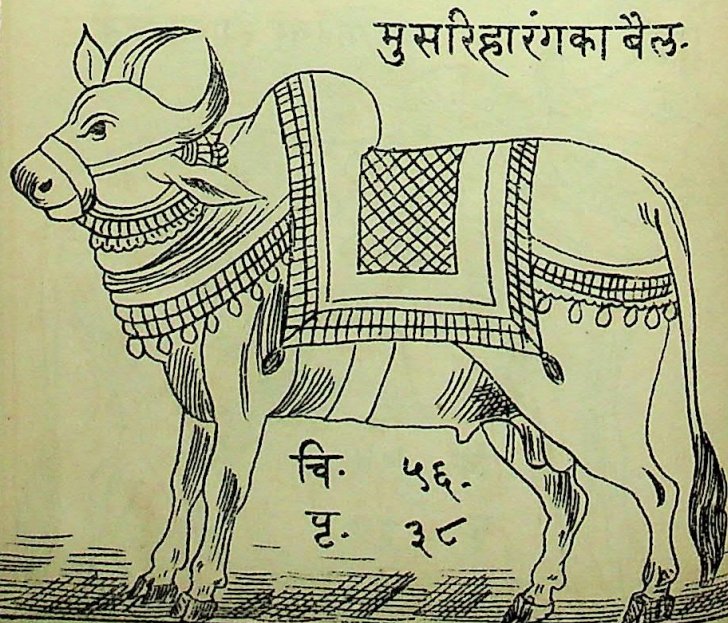 मुसरिहा रंग का बैल.
चि. ५६.
पृ. ३८